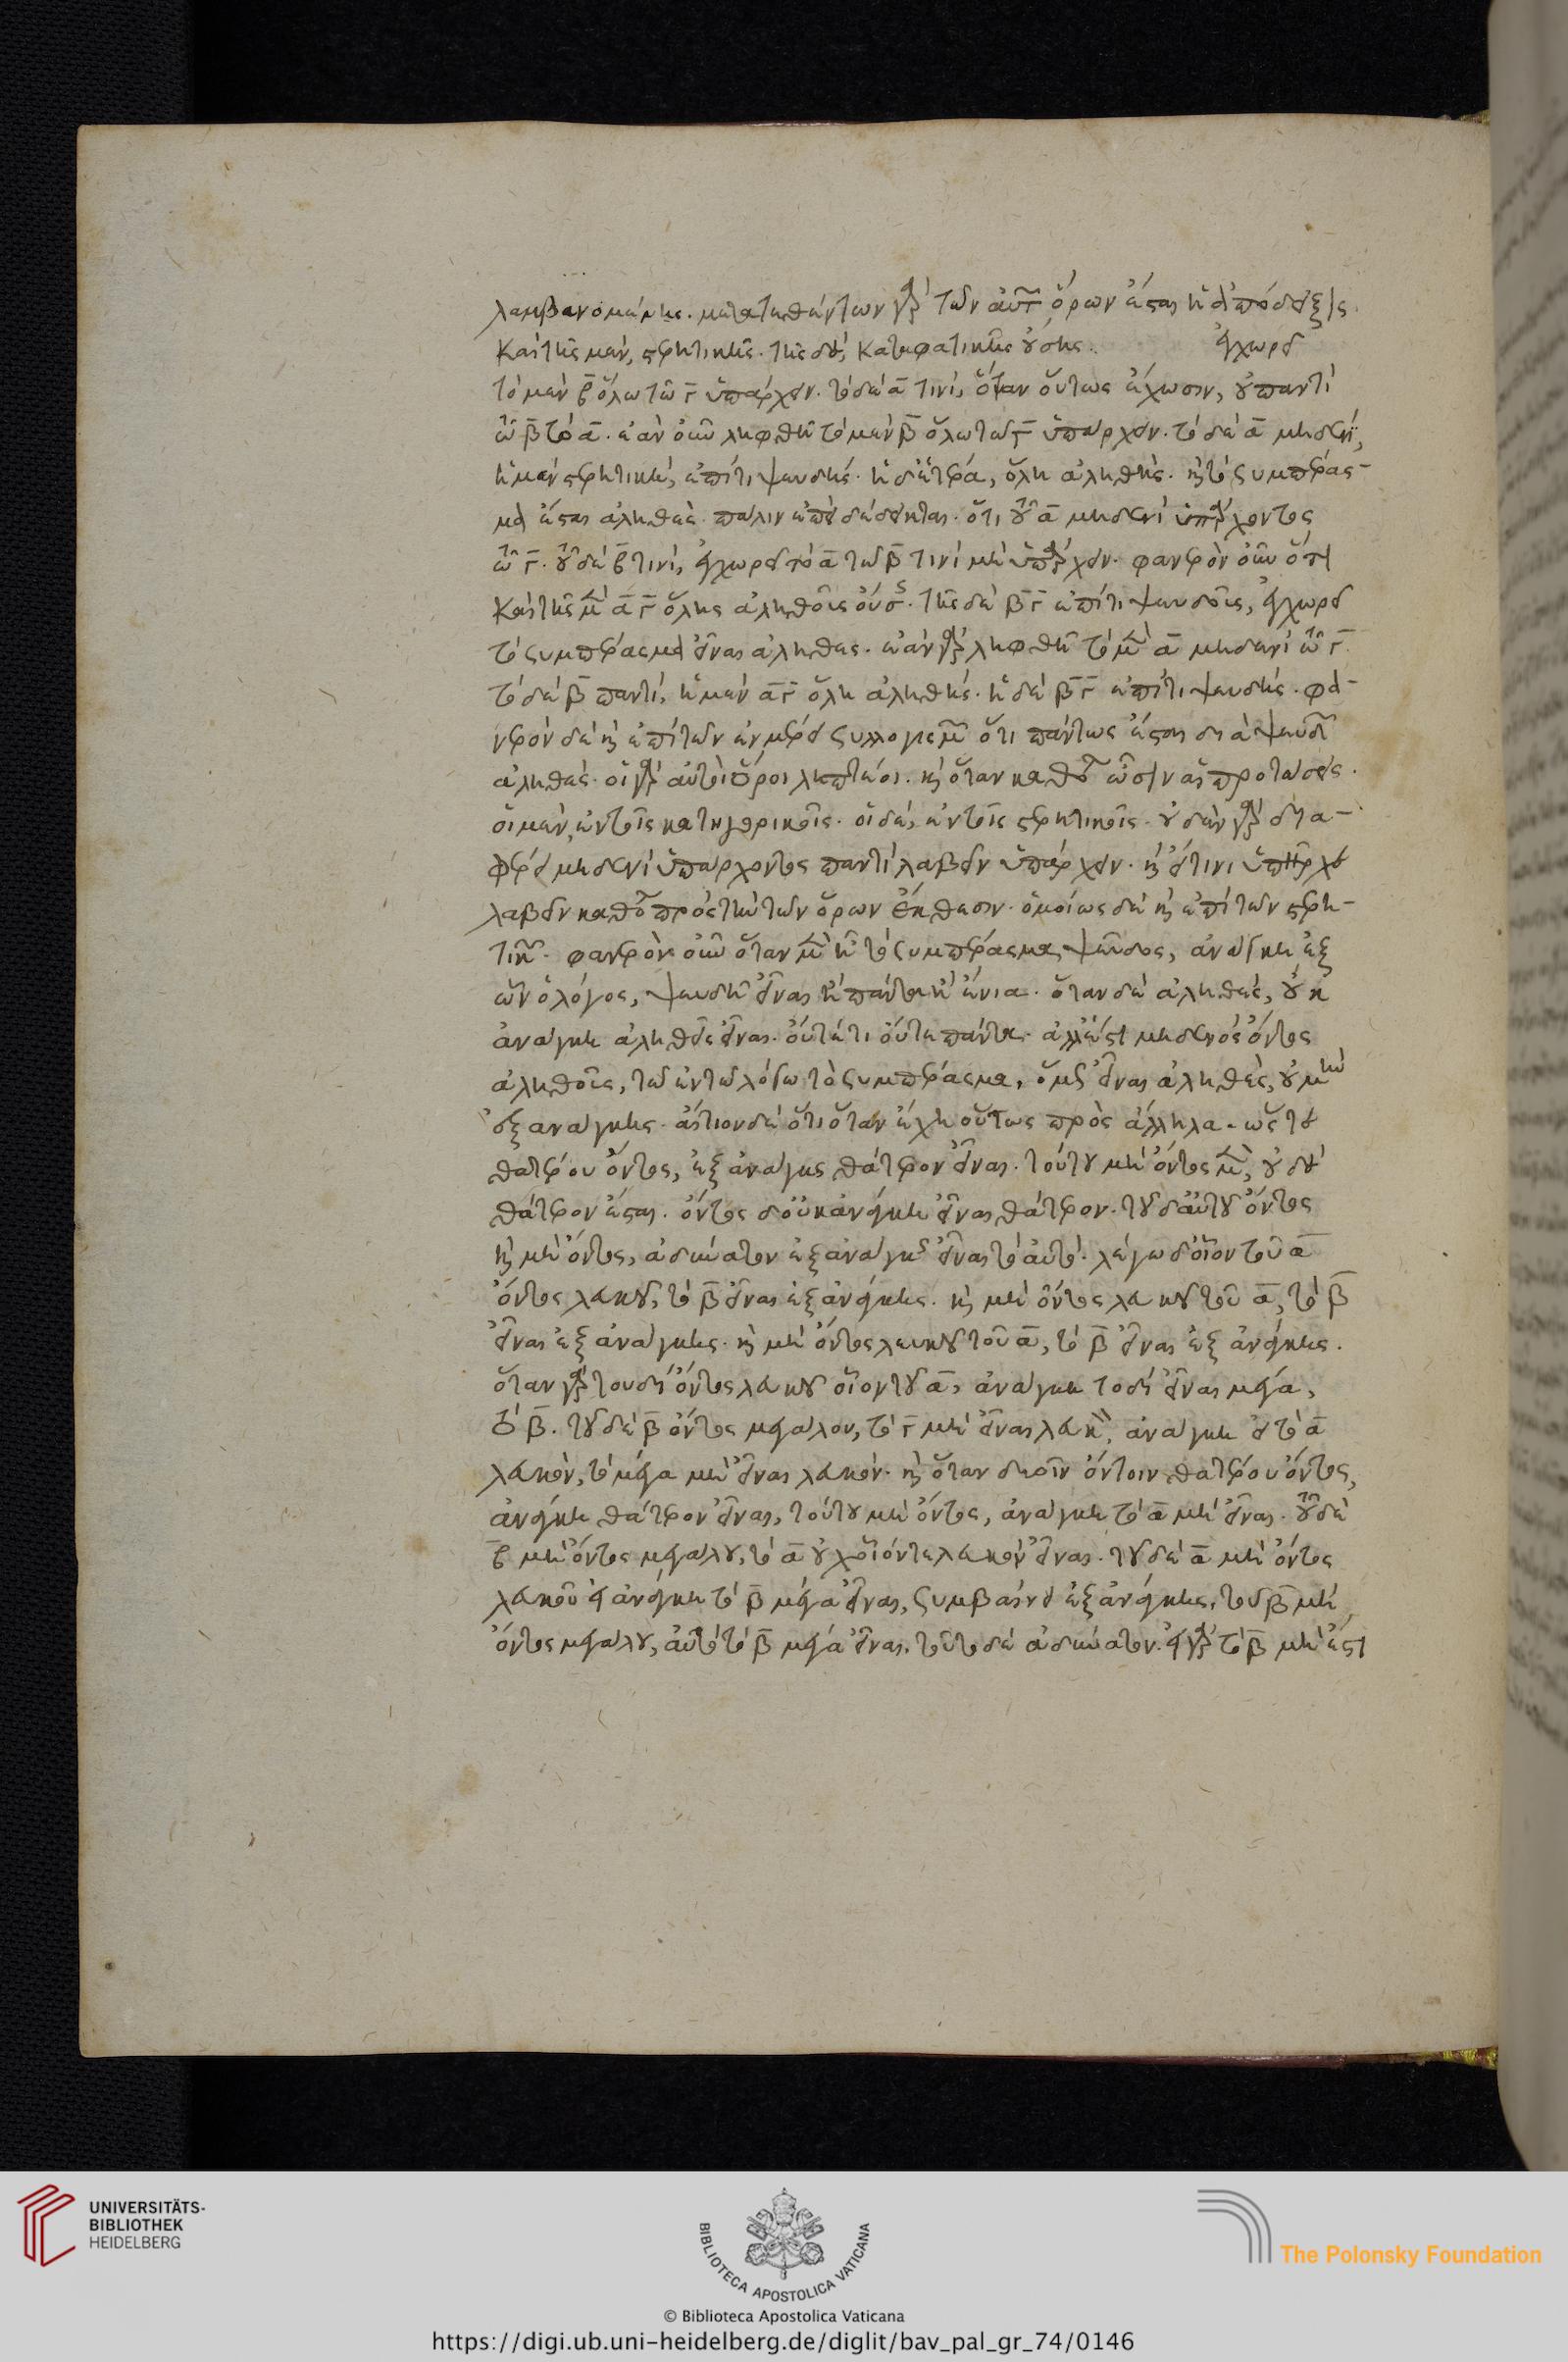 λαμβανομένης. μετατεθέντων γὰρ τῶν αὐτ ὅρων ἔσται ἡ ἀπόδειξις
Καὶ τῆς μὲν, στερητικῆς. τῆς δὲ, καταφατικῆς οὔσης. ἐγχωρεῖ
τὸ μὲν β ὅλω τῶ γ ὑπάρχειν. τὸ δὲ α τινὶ, ὅταν οὕτως ἔχωσιν, οὐ παντὶ
τῶ β τὸ α. ἐὰν οὖν ληφθῆ τὸ μὲν β ὅλω τῶ γ ὑπάρχειν. τὸ δὲ α μηδενὶ,
ἡ μὲν στερητικὴ, ἐπίτι ψευδής. ἡ δ' ἑτέρα, ὅλη ἀληθὴς. καὶ τὸ συμπέρασ-
μα ἔσται ἀληθές. πάλιν ἐπεὶ δέδεικται. ὅτι τοῦ α μηδενὶ ὑπάρχοντος
τῶ γ. τοῦ δὲ β τινὶ, ἐγχωρεῖ τὸ α τῶ β τινὶ μὴ ὑπάρχειν. φανερὸν οὖν ὅτι
Καὶ τῆς μὲν α γ ὅλης ἀληθοῦς οὔσης. τῆς δὲ β γ ἐπίτι ψευδοῦς, ἐγχωρεῖ
τὸ συμπέρασμα εἶναι ἀληθές. ἐὰν γὰρ ληφθῆ τὸ μὲν α μηδενὶ τῶ γ
τὸ δὲ β παντὶ, ἡ μὲν α γ ὅλη ἀληθής. ἡ δὲ β γ ἐπίτι ψευδής. φα-
νερὸν δὲ καὶ ἐπὶ τῶν ἐν μέρει συλλογισμῶν ὅτι πάντως ἔσται διὰ ψευδῶν
ἀληθές. οἱ γὰρ αὐτοὶ ὅροι ληπτέοι. καὶ ὅταν καθόλου ὦσιν αἱ προτάσεις.
οἱ μὲν, ἐν τοῖς κατηγορικοῖς. οἱ δὲ, ἐν τοῖς στερητικοῖς. οὐδὲν γὰρ δια-
φέρει μηδενὶ ὑπάρχοντος παντὶ λαβεῖν ὑπάρχειν. καὶ εἰ τινι ὑπῆρχε
λαβεῖν καθόλου πρὸς τὴν τῶν ὅρων ἔκθεσιν. ὁμοίως δὲ καὶ ἐπὶ τῶν στερη-
τικῶν. φανερὸν οὖν ὅταν μὲν ἦ τὸ συμπέρασμα ψεῦδος, ἀνάγκη ἐξ
ὧν ὁ λόγος, ψευδῆ εἶναι ἢ πάντα ἢ ἔνια. ὅταν δὲ ἀληθές, οὐκ
ἀνάγκη ἀληθὲς εἶναι. οὔτέ τι οὔτε πάντα. ἀλλ' ἔστι μηδενὸς ὄντος
ἀληθοῦς, τῶν ἐν τῶ λόγω τὸ συμπέρασμα, ὅμως εἶναι ἀληθὲς, οὐ μὴν
ἐξ ἀνάγκης. αἴτιον δὲ ὅτι ὅταν ἔχη οὕτως πρὸς ἄλληλα. ὥστε
θατέρου ὄντος, ἐξ ἀνάγκης θάτερον εἶναι. τούτου μὴ ὄντος μὲν, οὐδὲ
θάτερον ἔσται. ὄντος δ' οὐκ ἀνάγκη εἶναι θάτερον. τοῦ δ' αὐτοῦ ὄντος
καὶ μὴ ὄντος, ἀδύνατον ἐξ ἀνάγκης εἶναι τὸ αὐτό. λέγω δ' οἷον τοῦ α
ὄντος λευκοῦ, τὸ β εἶναι ἐξ ἀνάγκης. καὶ μὴ ὄντος λευκοῦ τοῦ α, τὸ β
εἶναι ἐξ ἀνάγκης. καὶ μὴ ὄντος λευκοῦ τοῦ α, τὸ β εἶναι ἐξ ἀνάγκης.
ὅταν γὰρ τουδὶ ὄντος λευκοῦ οἷον τοῦ α, ἀνάγκη τοδὶ εἶναι μέγα,
τὸ β. τοῦ δὲ β ὄντος μεγάλου, τὸ γ μὴ εἶναι λευκὸν, ἀνάγκη εἰ τὸ α
λευκὸν, τὸ μέγα μὴ εἶναι λευκόν. καὶ ὅταν δυοῖν ὄντοιν θατέρου ὄντος,
ἀνάγκη θάτερον εἶναι, τούτου μὴ ὄντος, ἀνάγκη τὸ α μὴ εἶναι. τοῦ δὲ
β μὴ ὄντος μεγάλου, τὸ α οὐχ οἷόντε λευκὸν εἶναι. τοῦ δὲ α μὴ ὄντος
λευκοῦ εἰ ἀνάγκη τὸ β μέγα εἶναι, συμβαίνει ἐξ ἀνάγκης, τοῦ β μὴ
ὄντος μεγάλου, αὐτὸ τὸ β μέγα εἶναι. τοῦτο δὲ ἀδύνατον. εἰ γὰρ τὸ β μὴ ἔστι
UNIVERSITÄTS-
BIBLIOTHEK
HEIDELBERG
BIBLIOTECA APOSTOLICA VATICANA
The Polonsky Foundation
© Biblioteca Apostolica Vaticana
https://digi.ub.uni-heidelberg.de/diglit/bav_pal_gr_74/0146